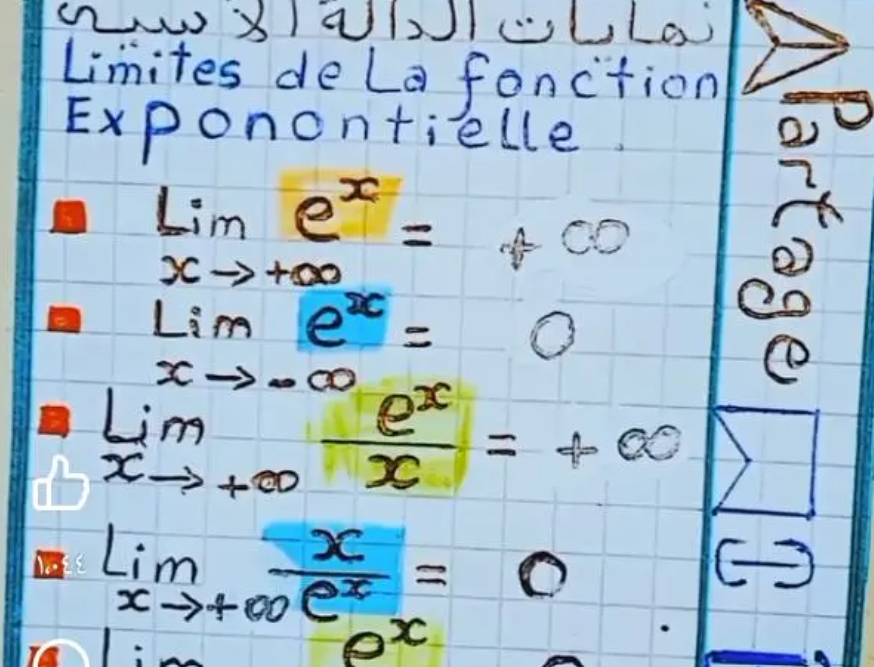 نهايات الدالة الأسية
Limites de La fonction
Exponontielle.
Lim e^x = +∞
x → +∞
Lim e^x = 0
x → -∞
Lim e^x/x = +∞
x → +∞
Lim x/e^x = 0
x → +∞
Lim e^x
Partage
١٠٤٤